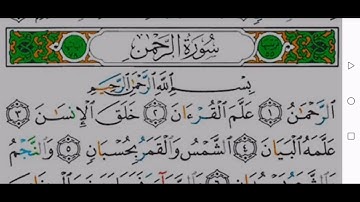 سُورَةُ الرَّحْمَٰن
بِسْمِ اللَّهِ الرَّحْمَٰنِ الرَّحِيمِ
الرَّحْمَٰنُ ١ عَلَّمَ الْقُرْءَانَ ٢ خَلَقَ الْإِنسَٰنَ ٣
عَلَّمَهُ الْبَيَانَ ٤ الشَّمْسُ وَالْقَمَرُ بِحُسْبَانٍ ٥ وَالنَّجْمُ